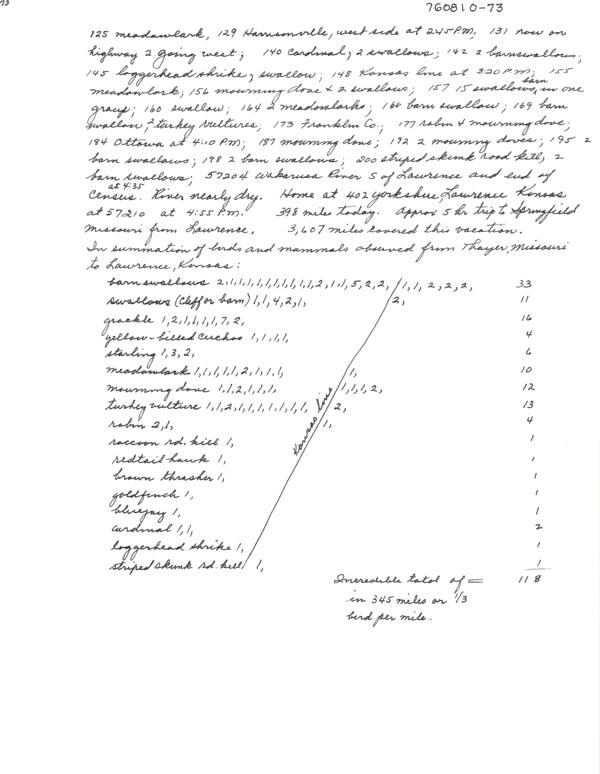 73
760810-73
125 meadowlark, 129 Harrisonville, west side at 2:45 P.M; 131 now on
highway 2 going west; 140 cardinal, 2 swallows; 142 2 barnswallows;
145 loggerhead shrike, swallow; 148 Kansas line at 3:20 P.M; 155
meadowlark; 156 mourning dove & 2 swallows; 157 15 barn swallows, in one
group; 160 swallow; 164 2 meadowlarks; 168 barn swallow; 169 barn
swallow, 2 turkey vultures; 173 Franklin Co; 177 robin & mourning dove;
184 Ottawa at 4:10 P.M; 187 mourning dove; 192 2 mourning doves; 195 2
barn swallows; 198 2 barn swallows; 200 striped skunk road kill, 2
barn swallows; 57204 Wakarusa River S of Lawrence and end of
census at 4:35. River nearly dry. Home at 402 Yorkshire, Lawrence Kansas
at 57210 at 4:55 P.M. 398 miles today. Approx 5 hr trip to Springfield
Missouri from Lawrence. 3,607 miles covered this vacation.
In summation of birds and mammals observed from Thayer, Missouri
to Lawrence, Kansas:
barn swallows 2,1,1,1,1,1,1,1,1,1,1,2,1,1,5,2,2, / 1,1,2,2,2, 33
swallows (cliff or barn) 1,1,4,2,1, 2, 11
grackle 1,2,1,1,1,1,7,2, 16
yellow-billed cuckoo 1,1,1,1, 4
starling 1,3,2, 6
meadowlark 1,1,1,1,1,2,1,1,1, 1, 10
mourning dove 1,1,2,1,1,1, 1,1,1,2, 12
turkey vulture 1,1,2,1,1,1,1,1,1,1, 2, 13
robin 2,1, 1, 4
Kansas line
raccoon rd. kill 1, 1
redtail hawk 1, 1
brown thrasher 1, 1
goldfinch 1, 1
bluejay 1, 1
cardinal 1,1, 2
loggerhead shrike 1, 1
striped skunk rd. kill 1, 1
Incredible total of = 118
in 345 miles or 1/3
bird per mile.